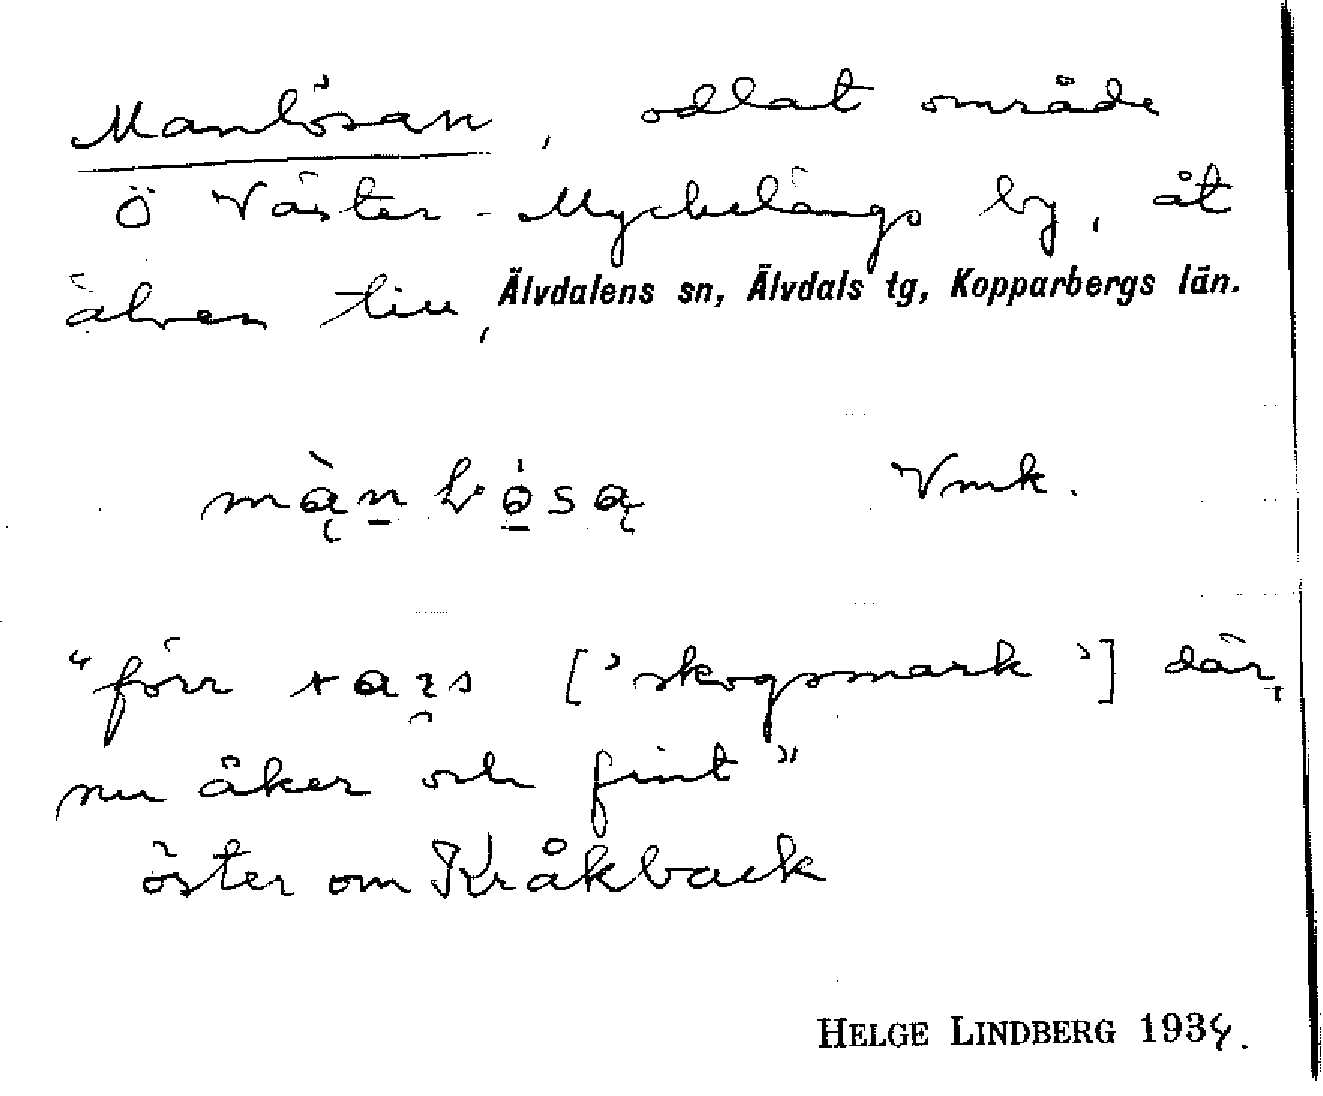 Manlösan, odlat område
Ö Väster-Myckelängs by, åt
älven till, Älvdalens sn, Älvdals tg, Kopparbergs län.
Vmk.
"förr ['skogsmark'] där,
nu åker och fint"
öster om Kråkback
HELGE LINDBERG 1934.